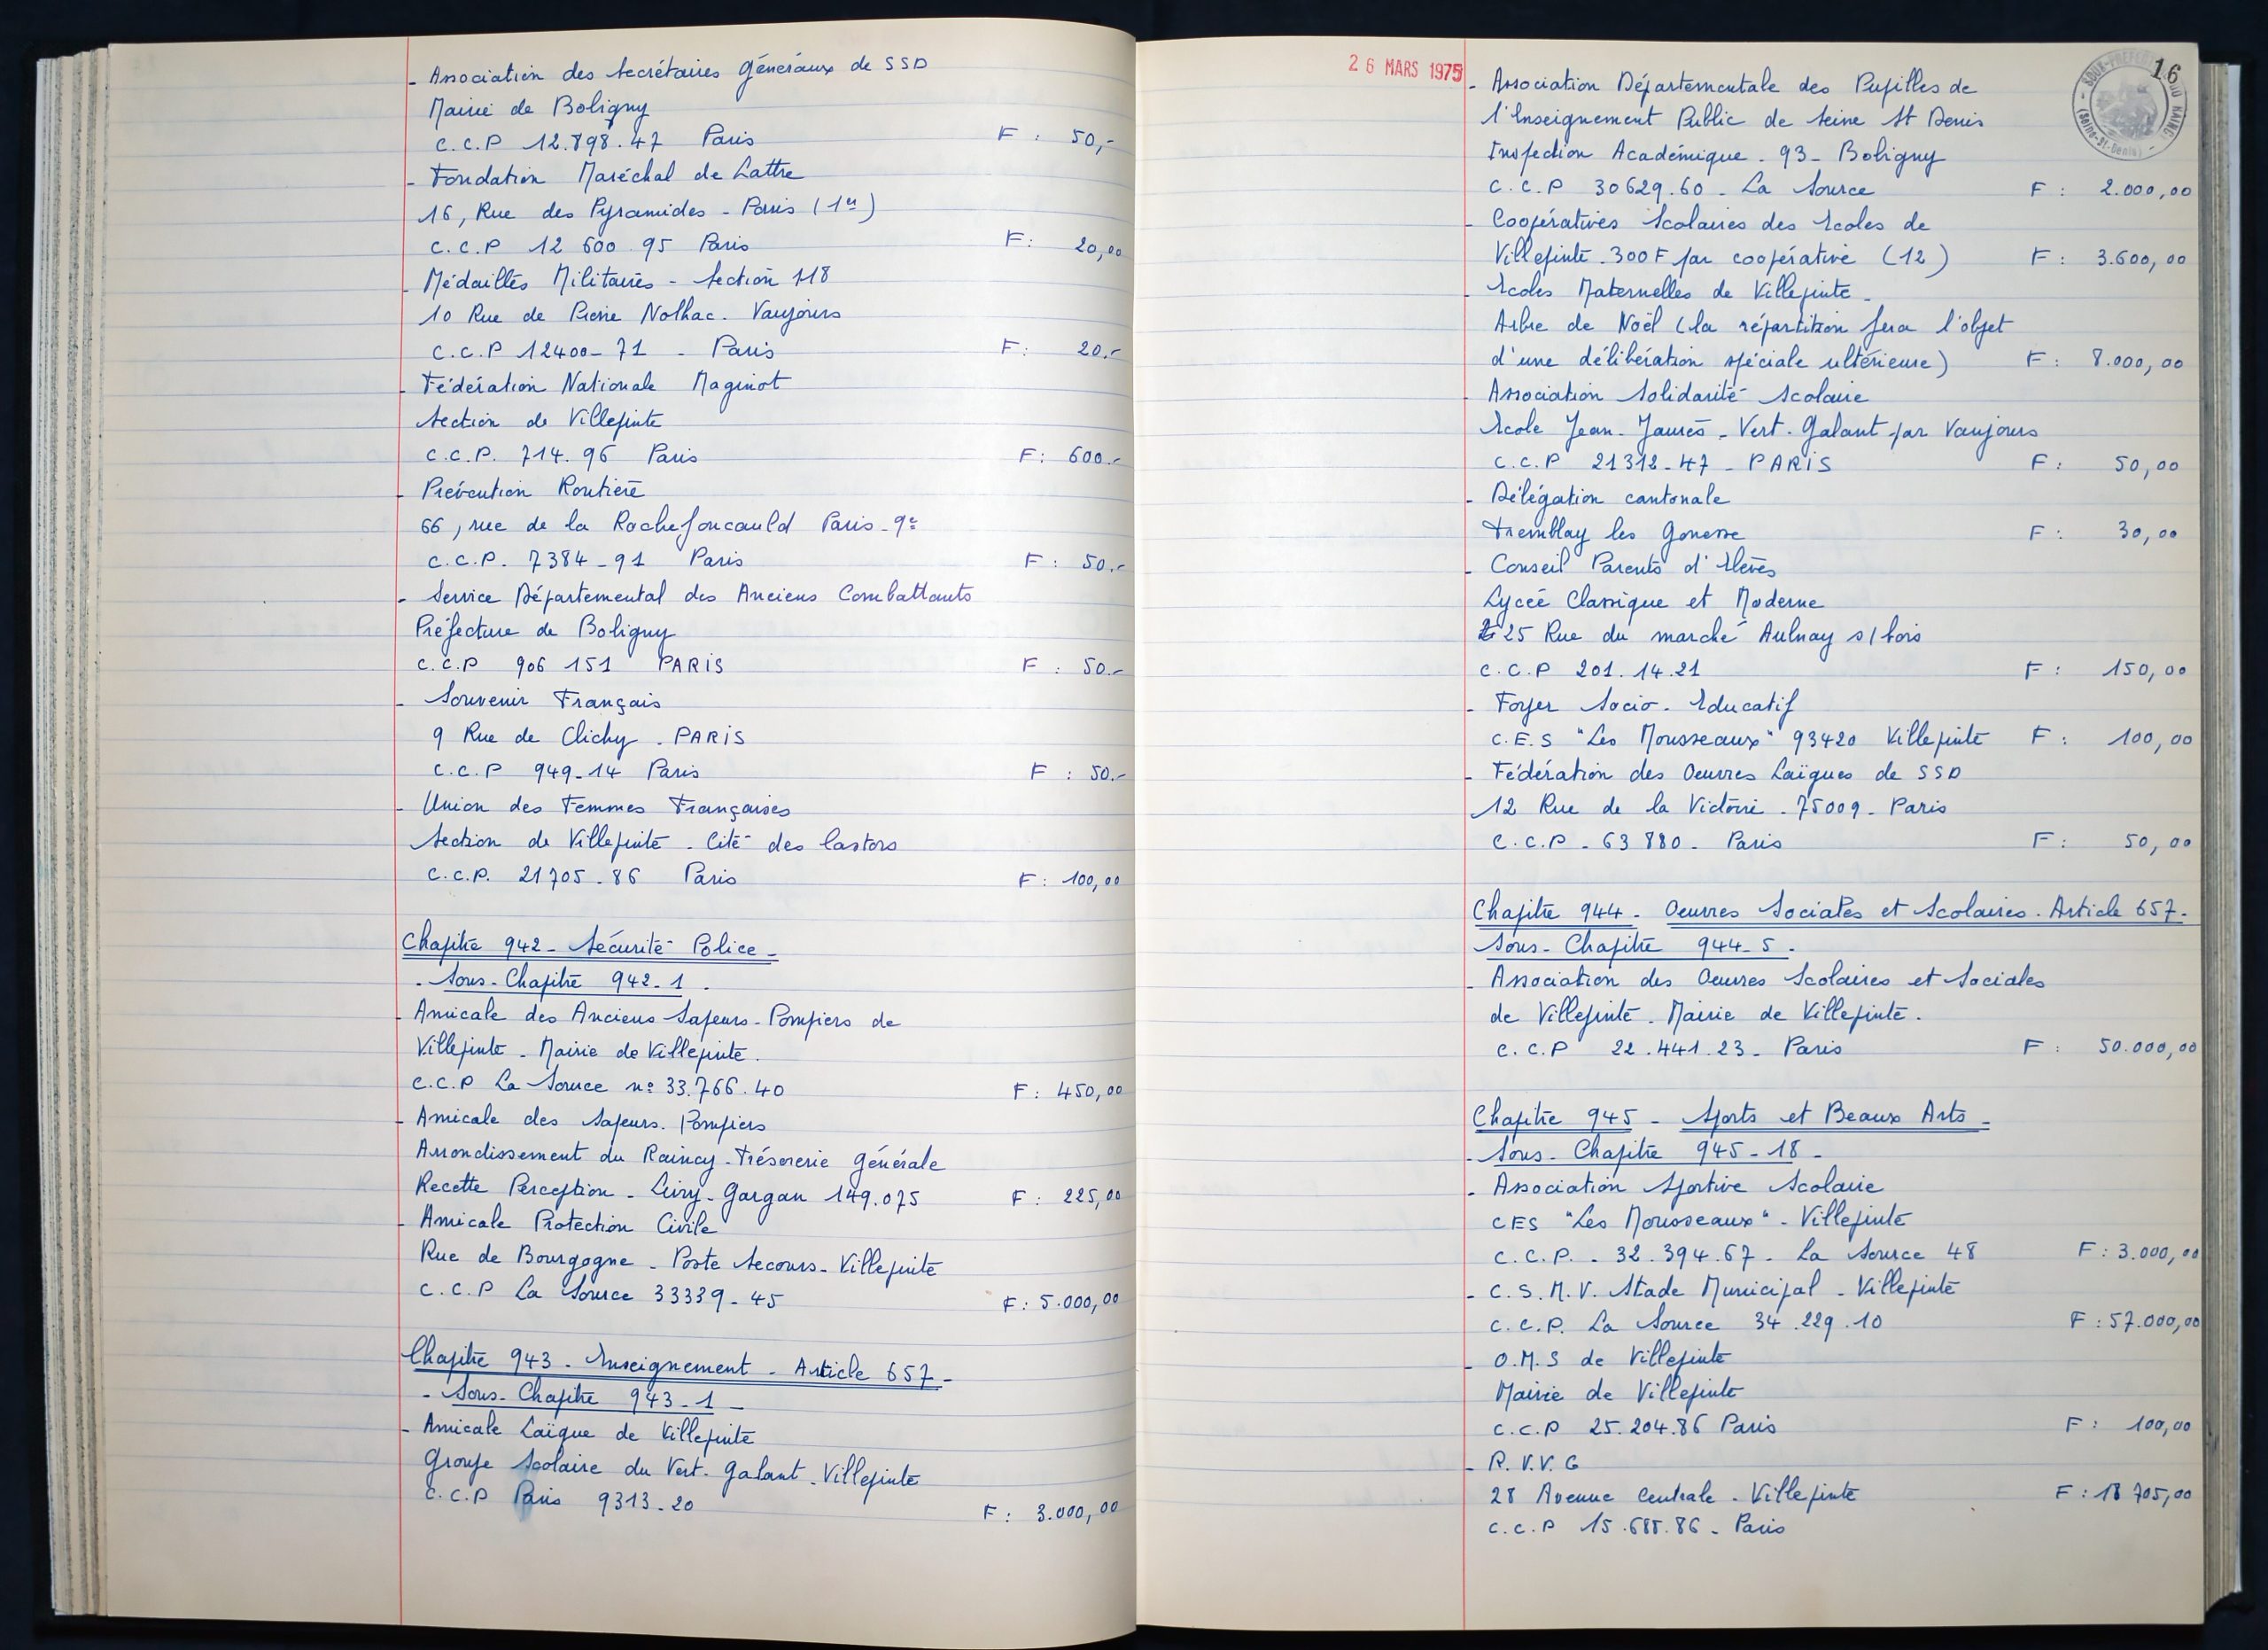 - Association des Secrétaires Généraux de SSD
Mairie de Bobigny
C.C.P 12.898.47 Paris F : 50,-
- Fondation Maréchal de Lattre
16, Rue des Pyramides - Paris (1er)
C.C.P 12 600 95 Paris F: 20,00
- Médaillés Militaires - Section 118
10 Rue de Pierre Nolhac. Vaujours
C.C.P 12400-71 - Paris F: 20.-
- Fédération Nationale Maginot
Section de Villepinte
C.C.P. 714.96 Paris F: 600.-
- Prévention Routière
66, rue de la Rochefoucauld Paris-9e
C.C.P. 7384-91 Paris F : 50.-
- Service Départemental des Anciens Combattants
Préfecture de Bobigny
C.C.P 906 151 PARIS F : 50.-
- Souvenir Français
9 Rue de Clichy . PARIS
C.C.P 949-14 Paris F : 50.-
- Union des Femmes Françaises
Section de Villepinte - Cité des Castors
C.C.P. 21705.86 Paris F: 100,00
Chapitre 942 - Sécurité Police -
- Sous-Chapitre 942-1 .
- Amicale des Anciens Sapeurs-Pompiers de
Villepinte - Mairie de Villepinte.
C.C.P La Source n° 33.766.40 F: 450,00
- Amicale des Sapeurs-Pompiers
Arrondissement du Raincy - Trésorerie Générale
Recette Perception - Livry-Gargan 149.075 F : 225,00
- Amicale Protection Civile
Rue de Bourgogne - Poste Secours - Villepinte
C.C.P La Source 33339-45 F: 5.000,00
Chapitre 943 - Enseignement - Article 657 -
- Sous-Chapitre 943-1 -
- Amicale Laïque de Villepinte
Groupe Scolaire du Vert-Galant - Villepinte
C.C.P Paris 9313-20 F : 3.000,00
26 MARS 1975
16
SOUS-PREFECTURE DU RAINCY (Seine-St-Denis)
- Association Départementale des Pupilles de
l'Enseignement Public de Seine St Denis
Inspection Académique - 93 - Bobigny
C.C.P 30629.60 - La Source F : 2.000,00
- Coopératives Scolaires des Ecoles de
Villepinte - 300 F par coopérative (12) F : 3.600,00
- Ecoles Maternelles de Villepinte -
Arbre de Noël (la répartition fera l'objet
d'une délibération spéciale ultérieure) F : 8.000,00
- Association Solidarité Scolaire
Ecole Jean-Jaurès - Vert-Galant par Vaujours
C.C.P 21312-47 - PARIS F : 50,00
- Délégation cantonale
Tremblay les Gonesse F : 30,00
- Conseil Parents d'Elèves
Lycée Classique et Moderne
25 Rue du marché Aulnay s/bois
C.C.P 201.14.21 F : 150,00
- Foyer Socio-Educatif
C.E.S "Les Mousseaux" 93420 Villepinte F : 100,00
- Fédération des Oeuvres Laïques de SSD
12 Rue de la Victoire - 75009 - Paris
C.C.P - 63 880 - Paris F : 50,00
Chapitre 944 - Oeuvres Sociales et Scolaires. Article 657 -
Sous-Chapitre 944-5 .
- Association des Oeuvres Scolaires et Sociales
de Villepinte - Mairie de Villepinte.
C.C.P 22.441.23 - Paris F : 50.000,00
Chapitre 945 - Sports et Beaux Arts -
- Sous-Chapitre 945-18 -
- Association Sportive Scolaire
CES "Les Mousseaux" - Villepinte
C.C.P. - 32.394.67 - La Source 48 F : 3.000,00
- C.S.M.V. Stade Municipal - Villepinte
C.C.P. La Source 34.229.10 F : 57.000,00
- O.M.S de Villepinte
Mairie de Villepinte
C.C.P 25.204.86 Paris F : 100,00
- R.V.V.G
28 Avenue Centrale - Villepinte F : 18 705,00
C.C.P 15.685.86 - Paris